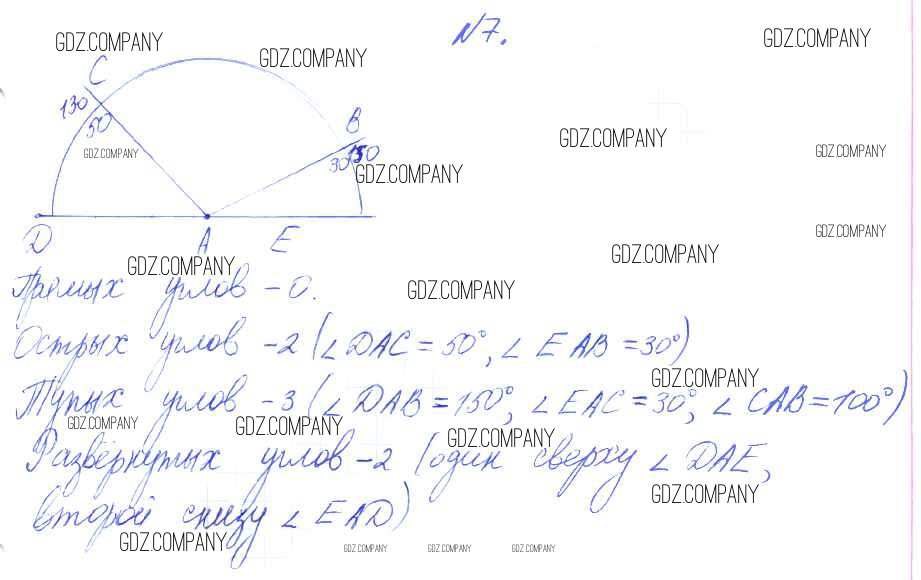 N7.
GDZ.COMPANY
GDZ.COMPANY
GDZ.COMPANY
C
130
50
B
30 150
GDZ.COMPANY
GDZ.COMPANY
GDZ.COMPANY
GDZ.COMPANY
D A E
GDZ.COMPANY
GDZ.COMPANY
GDZ.COMPANY
GDZ.COMPANY
Прямых углов - 0.
Острых углов - 2 (∠ DAC = 50°, ∠ EAB = 30°)
GDZ.COMPANY
Тупых углов - 3 (∠ DAB = 150°, ∠ EAC = 30°, ∠ CAB = 100°)
GDZ.COMPANY
GDZ.COMPANY
GDZ.COMPANY
Развёрнутых углов - 2 (один сверху ∠ DAE,
GDZ.COMPANY
второй снизу ∠ EAD)
GDZ.COMPANY
GDZ.COMPANY
GDZ.COMPANY
GDZ.COMPANY